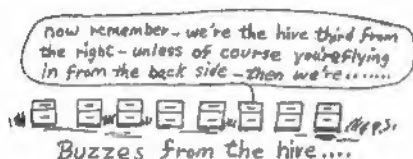 now remember - we're the hive third from
the right - unless of course you're flying
in from the back side - then we're.......
Buzzes from the hive....